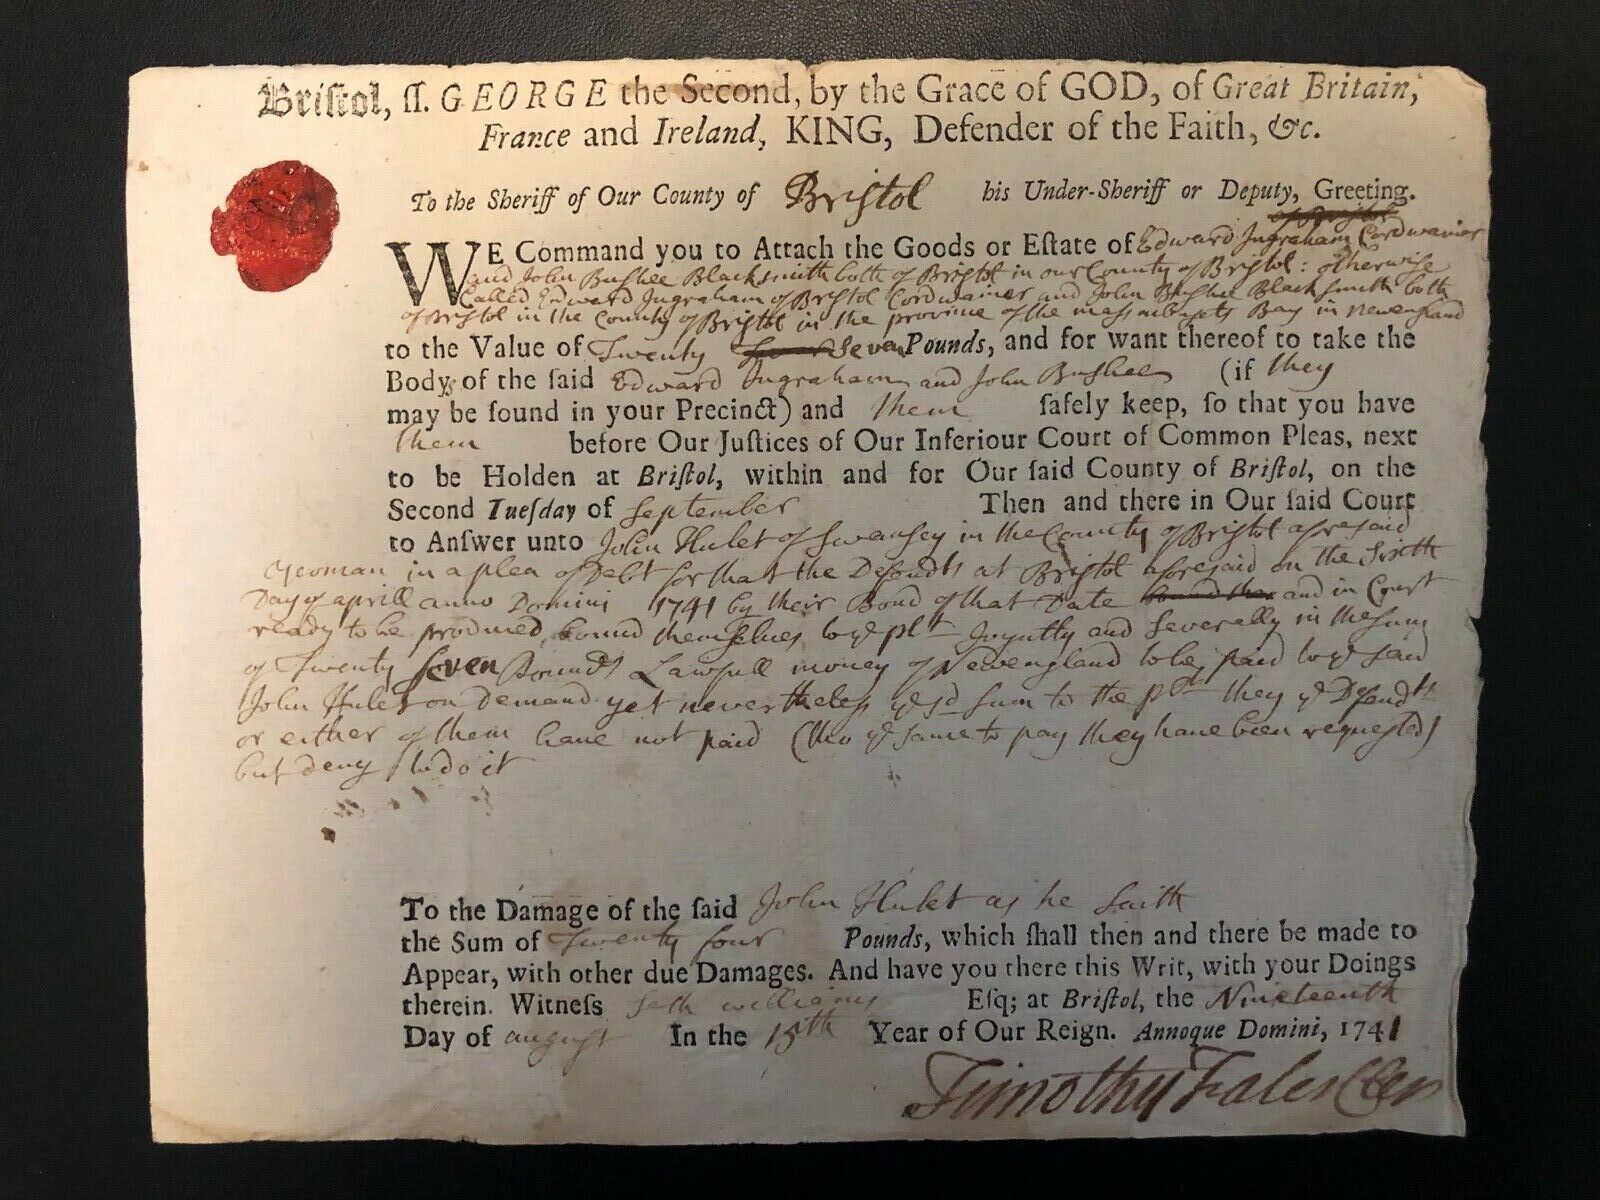 Bristol, ss. GEORGE the Second, by the Grace of GOD, of Great Britain,
France and Ireland, KING, Defender of the Faith, &c.
To the Sheriff of Our County of Bristol his Under-Sheriff or Deputy, Greeting.
WE Command you to Attach the Goods or Eſtate of Edward Ingraham Cordwainer
and John Bushee Blacksmith both of Bristol in our County of Bristol: otherwise
Called Edward Ingraham of Bristol Cordwainer and John Bushee Blacksmith both
of Bristol in the County of Bristol in the province of the massachusets Bay in newengland
to the Value of Twenty Seven Pounds, and for want thereof to take the
Bodys of the ſaid Edward Ingraham and John Bushee (if they
may be found in your Precinct) and them ſafely keep, ſo that you have
them before Our Juſtices of Our Inferiour Court of Common Pleas, next
to be Holden at Briſtol, within and for Our ſaid County of Briſtol, on the
Second Tueſday of September Then and there in Our ſaid Court
to Anſwer unto John Hulet of Swansey in the County of Bristol aforesaid
yeoman in a plea of Debt for that the Defendts at Bristol aforesaid on the Sixth
Day of aprill anno Domini 1741 by their Bond of that Date and in Court
ready to be produced, bound themselves to ye plt Joyntly and Severally in the Sum
of Twenty Seven Pounds Lawfull money of Newengland to be paid to ye said
John Hulet on demand yet nevertheless ye sd Sum to the plt they ye Defendts
or either of them have not paid (tho ye same to pay they have been requested)
but deny to do it
To the Damage of the ſaid John Hulet as he Saith
the Sum of Twenty four Pounds, which ſhall then and there be made to
Appear, with other due Damages. And have you there this Writ, with your Doings
therein. Witneſs Seth williams Eſq; at Briſtol, the Nineteenth
Day of august In the 15th Year of Our Reign. Annoque Domini, 1741
Timothy Fales Cler